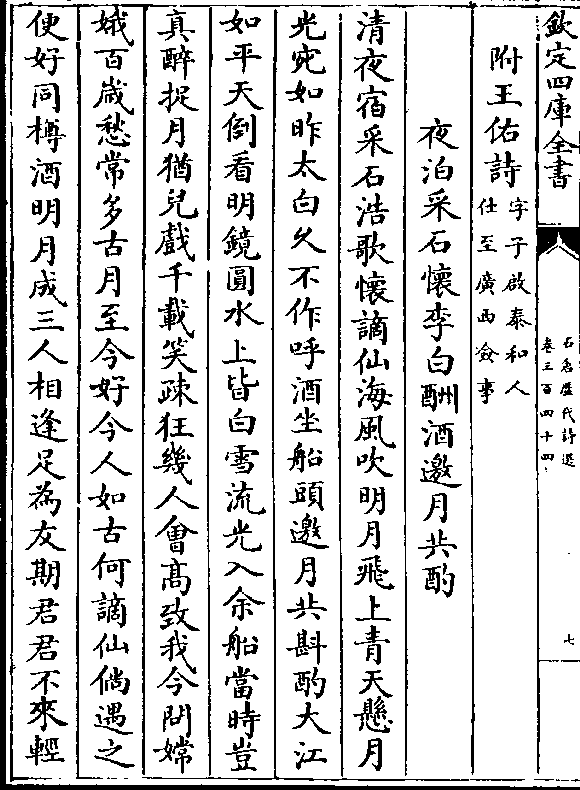 欽定四庫全書
石倉歷代詩選
卷三百四十四
七
附王佑詩字子啟泰和人
仕至廣西僉事
夜泊采石懷李白酬酒邀月共酌
清夜宿采石浩歌懷謫仙海風吹明月飛上青天懸月
光宛如昨太白久不作呼酒坐船頭邀月共斟酌大江
如平天倒看明鏡圓水上皆白雪流光入余船當時豈
真醉捉月猶兒戲千載笑疎狂幾人會高致我今問嫦
娥百歲愁常多古月至今好今人如古何謫仙倘遇之
使好同樽酒明月成三人相逢足為友期君君不來輕